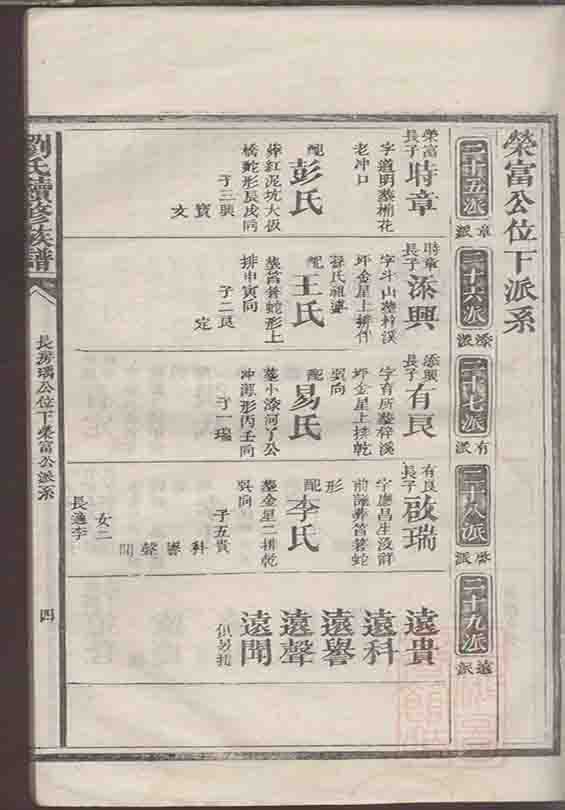 榮富公位下派系
二十五派
章派
二十六派
添派
二十七派
有派
二十八派
啟派
二十九派
遠派
榮富
長子
時章
字道明塟楠花
老冲口
配
彭氏
葬紅泥坑大仮
橋蛇形辰戌同
子三興
寶
文
時章
長子
添興
字斗山塟梓溪
坪金星上排作
蘇氏祖婆
配
王氏
塟筲箕蛇形上
排申寅向
子二良
定
添興
長子
有良
字育所塟梓溪
坪金星上排乾
巽向
配
易氏
塟小漆河了公
冲海形丙壬向
子一瑞
有良
長子
啟瑞
字應昌生没詳
前譜葬筲箕蛇
形
配
李氏
塟金星二排乾
巽向
子五貴
科
譽
聲
聞
女二
長適李
遠貴
遠科
遠譽
遠聲
遠聞
俱另接
劉氏續修族譜
長房瑀公位下榮富公派系
四